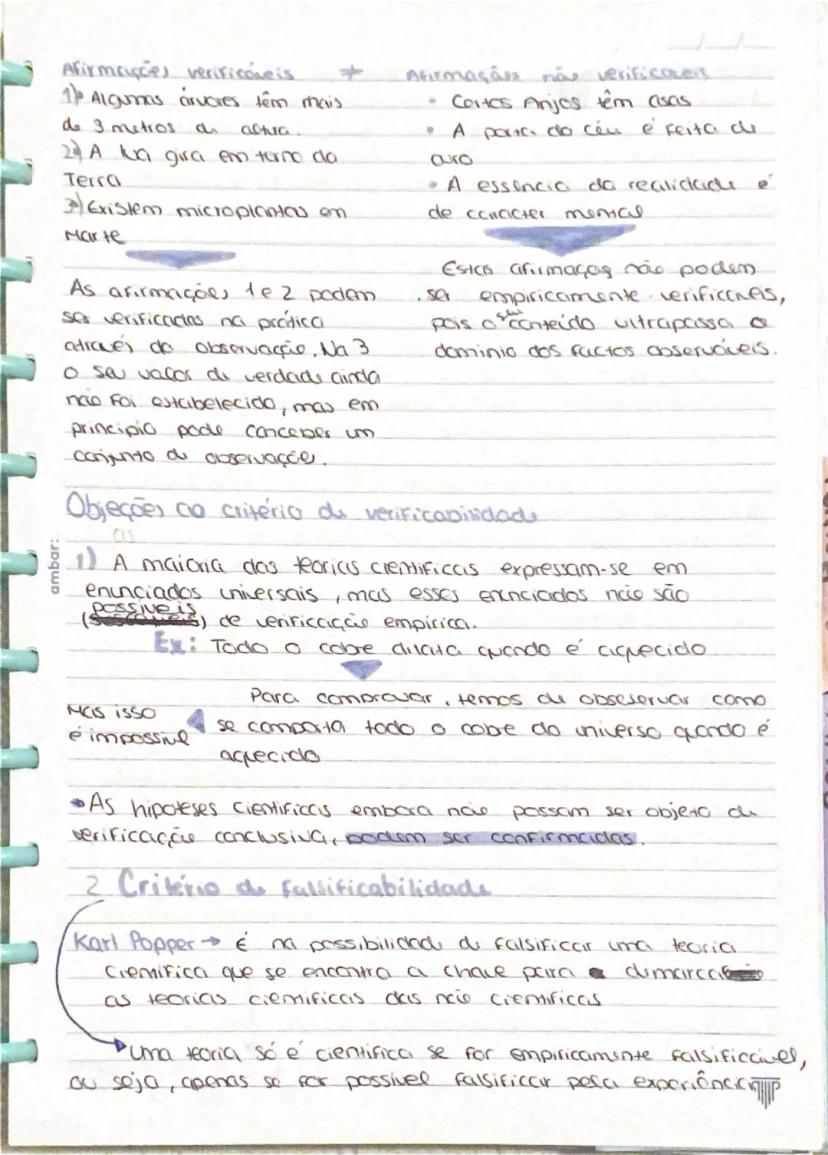 Afirmações verificáveis ≠ Afirmações não verificaveis
1) Algumas árvores têm mais
de 3 metros de altura.
2) A lua gira em torno da
Terra
3) Existem microplantas em
Marte
• Certos Anjos têm asas
• A porta do céu é feita de
ouro
• A essência da realidade é
de caracter mental
As afirmações 1 e 2 podem
ser verificadas na prática
através da observação. Na 3
o seu valor de verdade ainda
não foi estabelecido, mas em
principio pode conceber um
conjunto de observações.
Estas afirmaços não podem
ser empiricamente verificaveis,
pois o seu conteúdo ultrapassa o
dominio dos factos observáveis.
Objeções ao critério de verificabilidade
as
1) A maioria das teorias cientificas expressam-se em
enunciados universais, mas esses enunciados não são
possiveis
() de verificação empirica.
Ex: Todo o cobre dilata quando é aquecido
Para comprovar, temos de obseservar como
se comporta todo o cobre do universo quando é
aquecido
Mas isso
é impossivel
• As hipoteses cientificas embora não possam ser objeto de
verificação conclusiva, podem ser confirmadas.
2 Critério de falsificabilidade
Karl Popper → É na possibilidade de falsificar uma teoria
cientifica que se encontra a chave para dimarcar
as teorias cientificas das não cientificas
Uma teoria só é cientifica se for empiricamente falsificável,
ou seja, apenas se for possivel falsificar pela experiência
ambar: